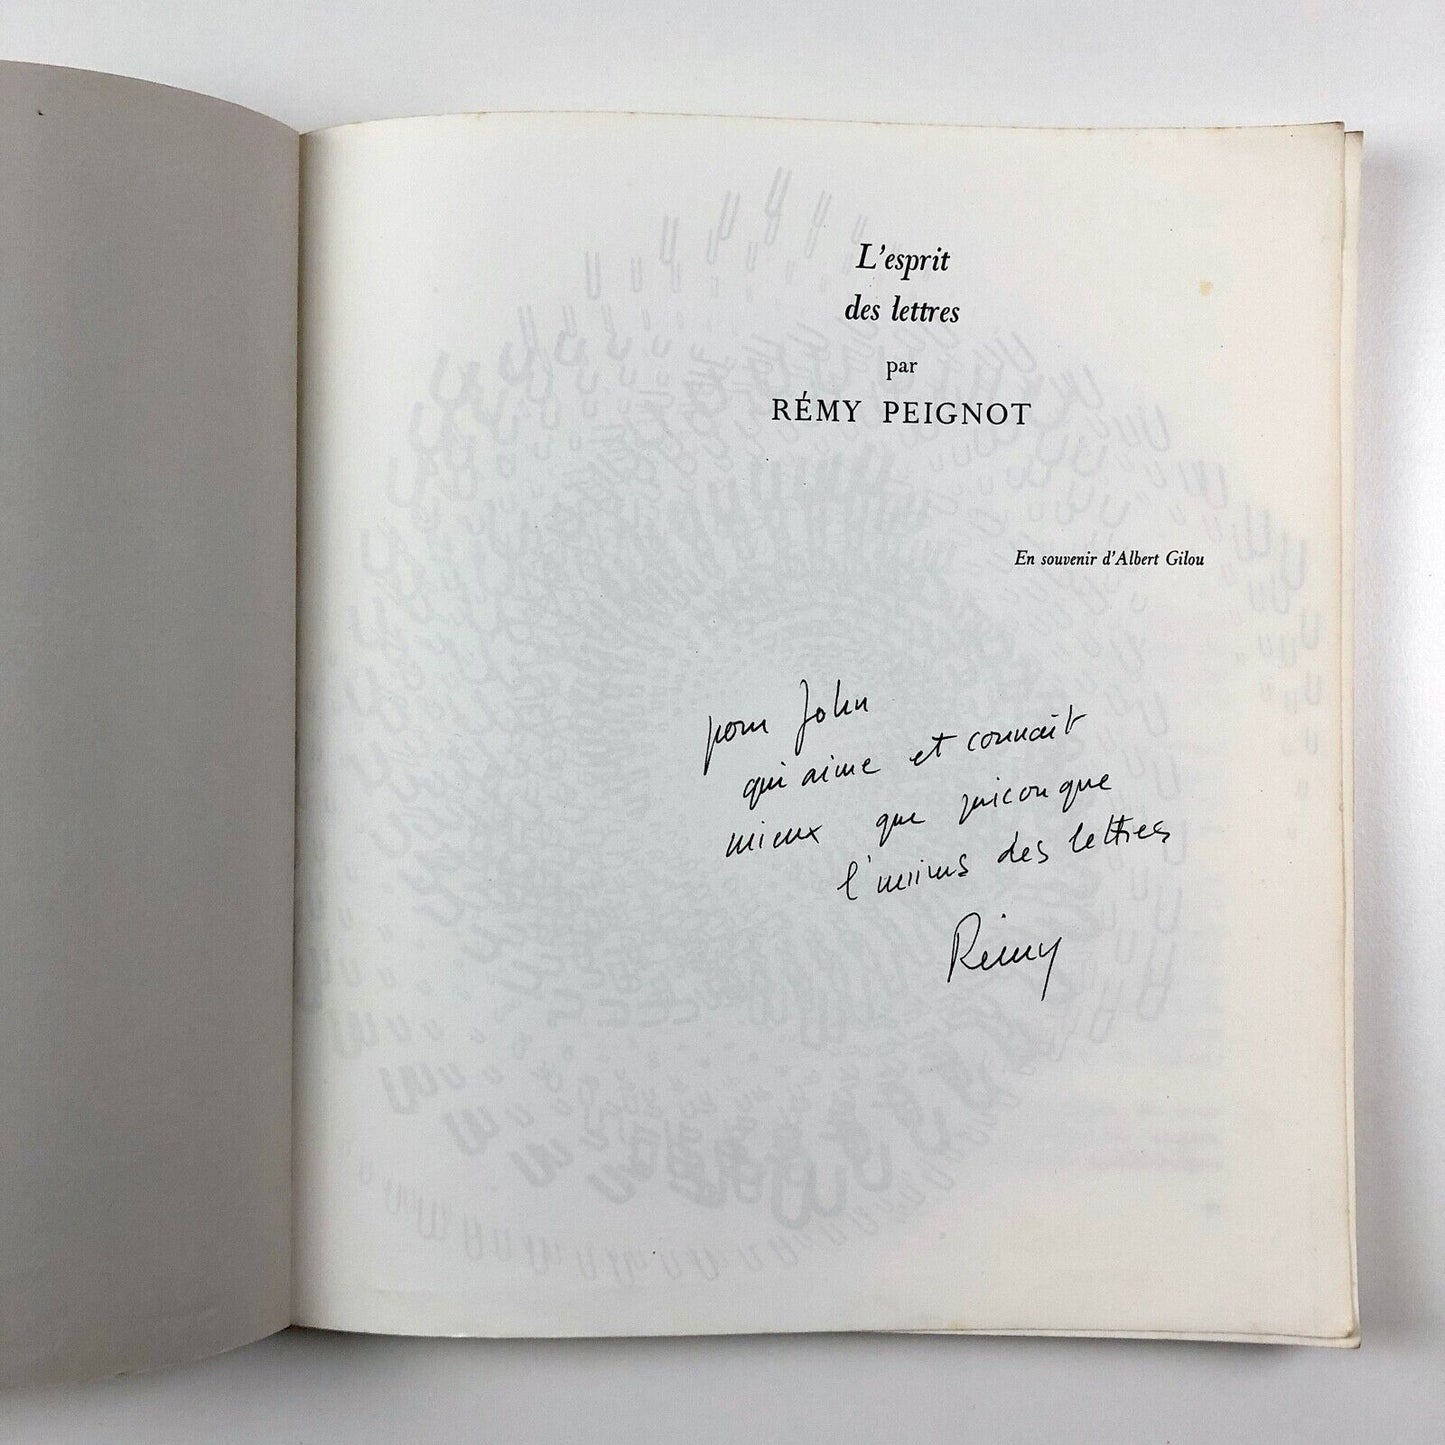 L'esprit
des lettres
par
RÉMY PEIGNOT
En souvenir d'Albert Gilou
pour John
qui aime et connait
mieux que quiconque
des lettres
Rémy